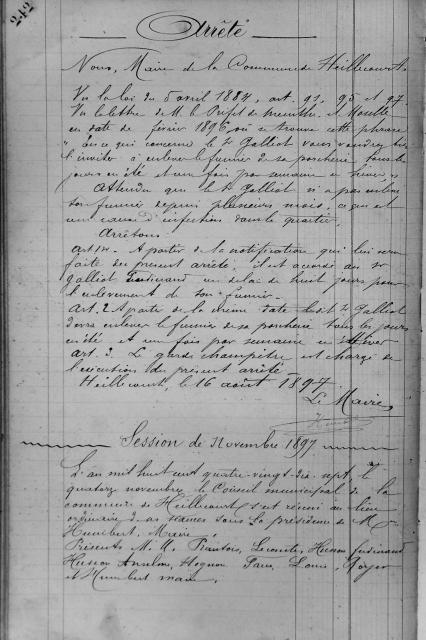 242
Arrêté
Nous, Maire de la Commune de Heillecourt,
Vu la loi du 5 avril 1884, art. 91, 95 et 97
Vu la lettre de M. le Préfet de Meurthe et Moselle
en date de février 1896, où se trouve cette phrase
" En ce qui concerne le Sr Galliot vous voudrez bien
l'inviter à enlever le fumier de sa porcherie tous les
jours en été et une fois par semaine en hiver "
Attendu que le Sr Galliot n'a pas enlevé
son fumier depuis plusieurs mois, ce qui est
une cause d'infection dans le quartier,
Arrêtons
Art. 1er. A partir de la notification qui lui sera
faite du présent arrêté, il est accordé au Sr
Galliot Ferdinand un délai de huit jours pour
l'enlèvement de son fumier.
Art. 2 A partir de la même date ledit Sr Galliot
devra enlever le fumier de sa porcherie tous les jours
en été et une fois par semaine en Hiver
Art. 3. Le garde champêtre est chargé de
l'exécution du présent arrêté
Heillecourt, le 16 août 1897
Le Maire,
Session de Novembre 1897
L'an mil huit cent quatre-vingt-dix-sept, le
quatorze novembre le Conseil municipal de la
commune de Heillecourt s'est réuni au lieu
ordinaire de ses séances sous la présidence de M.
Humbert, Maire,
Présents M. M. Lecomte, Husson Ferdinand
Husson Anselme, Hognon Louis, Royer
et Humbert maire.